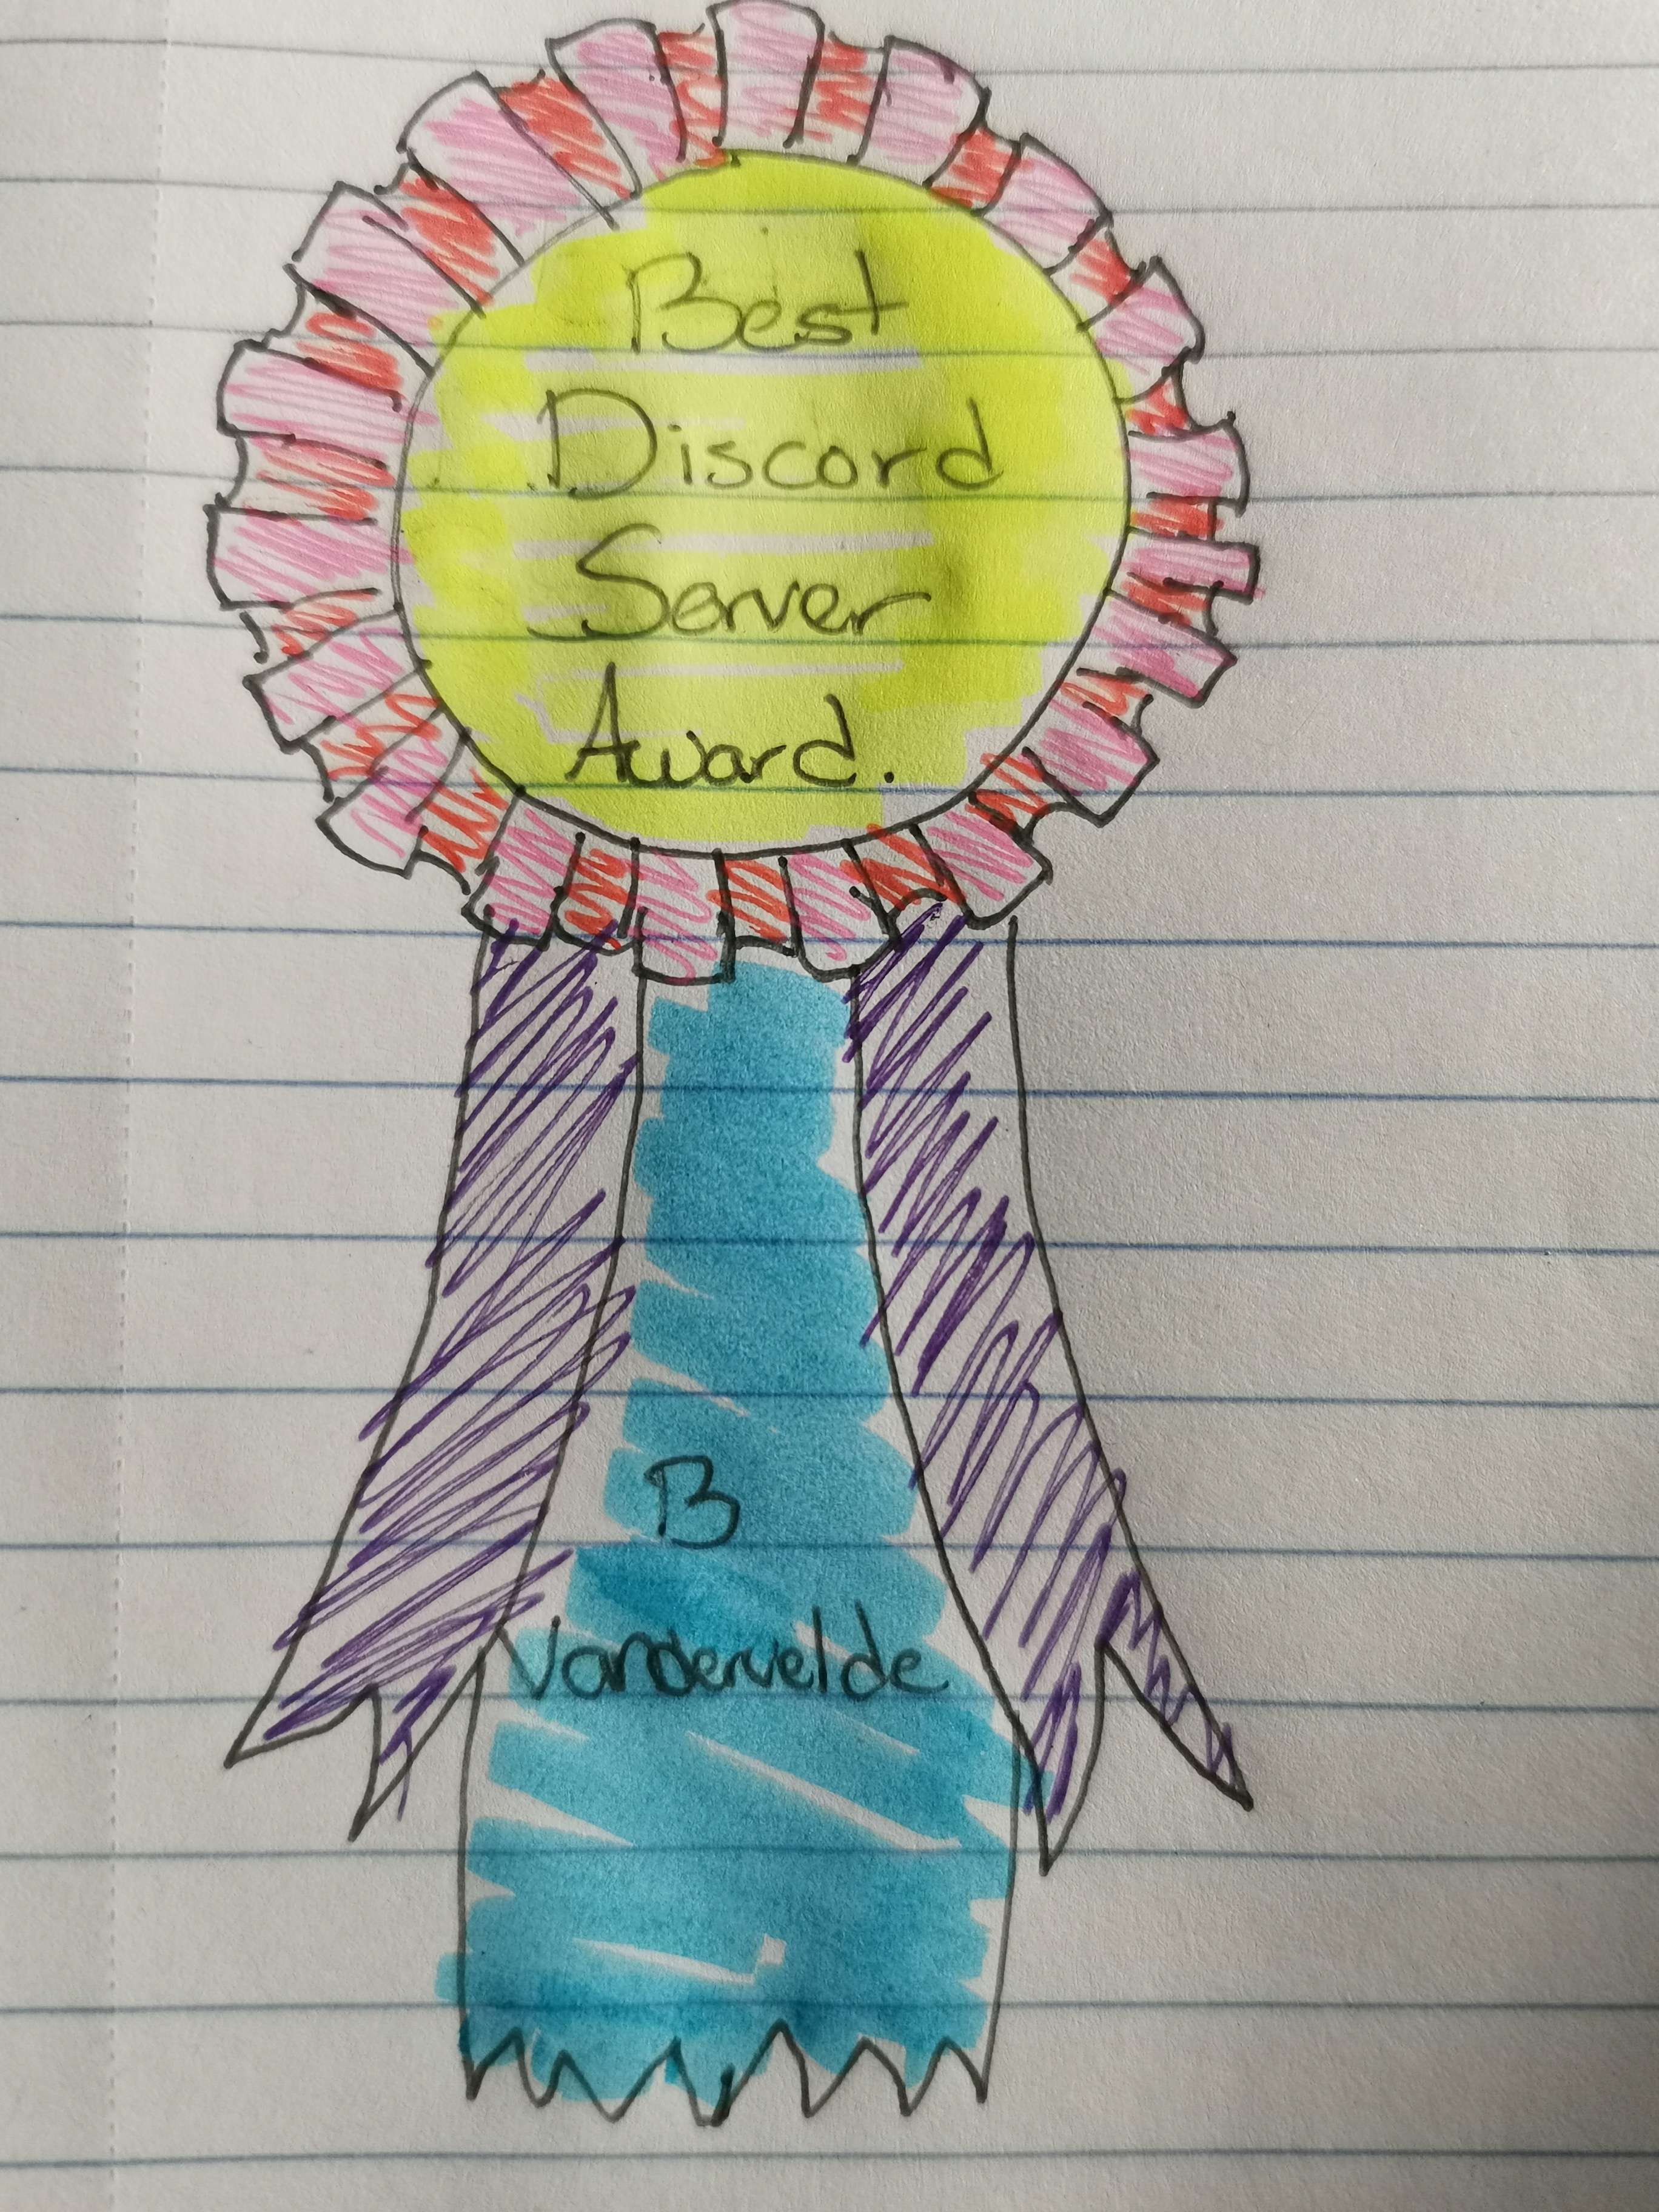 Best
Discord
Server
Award.
B
Vandervelde